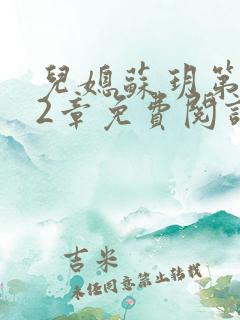 兒媳蘇玥第
2章免費閱
吉米
未经同意禁止转载